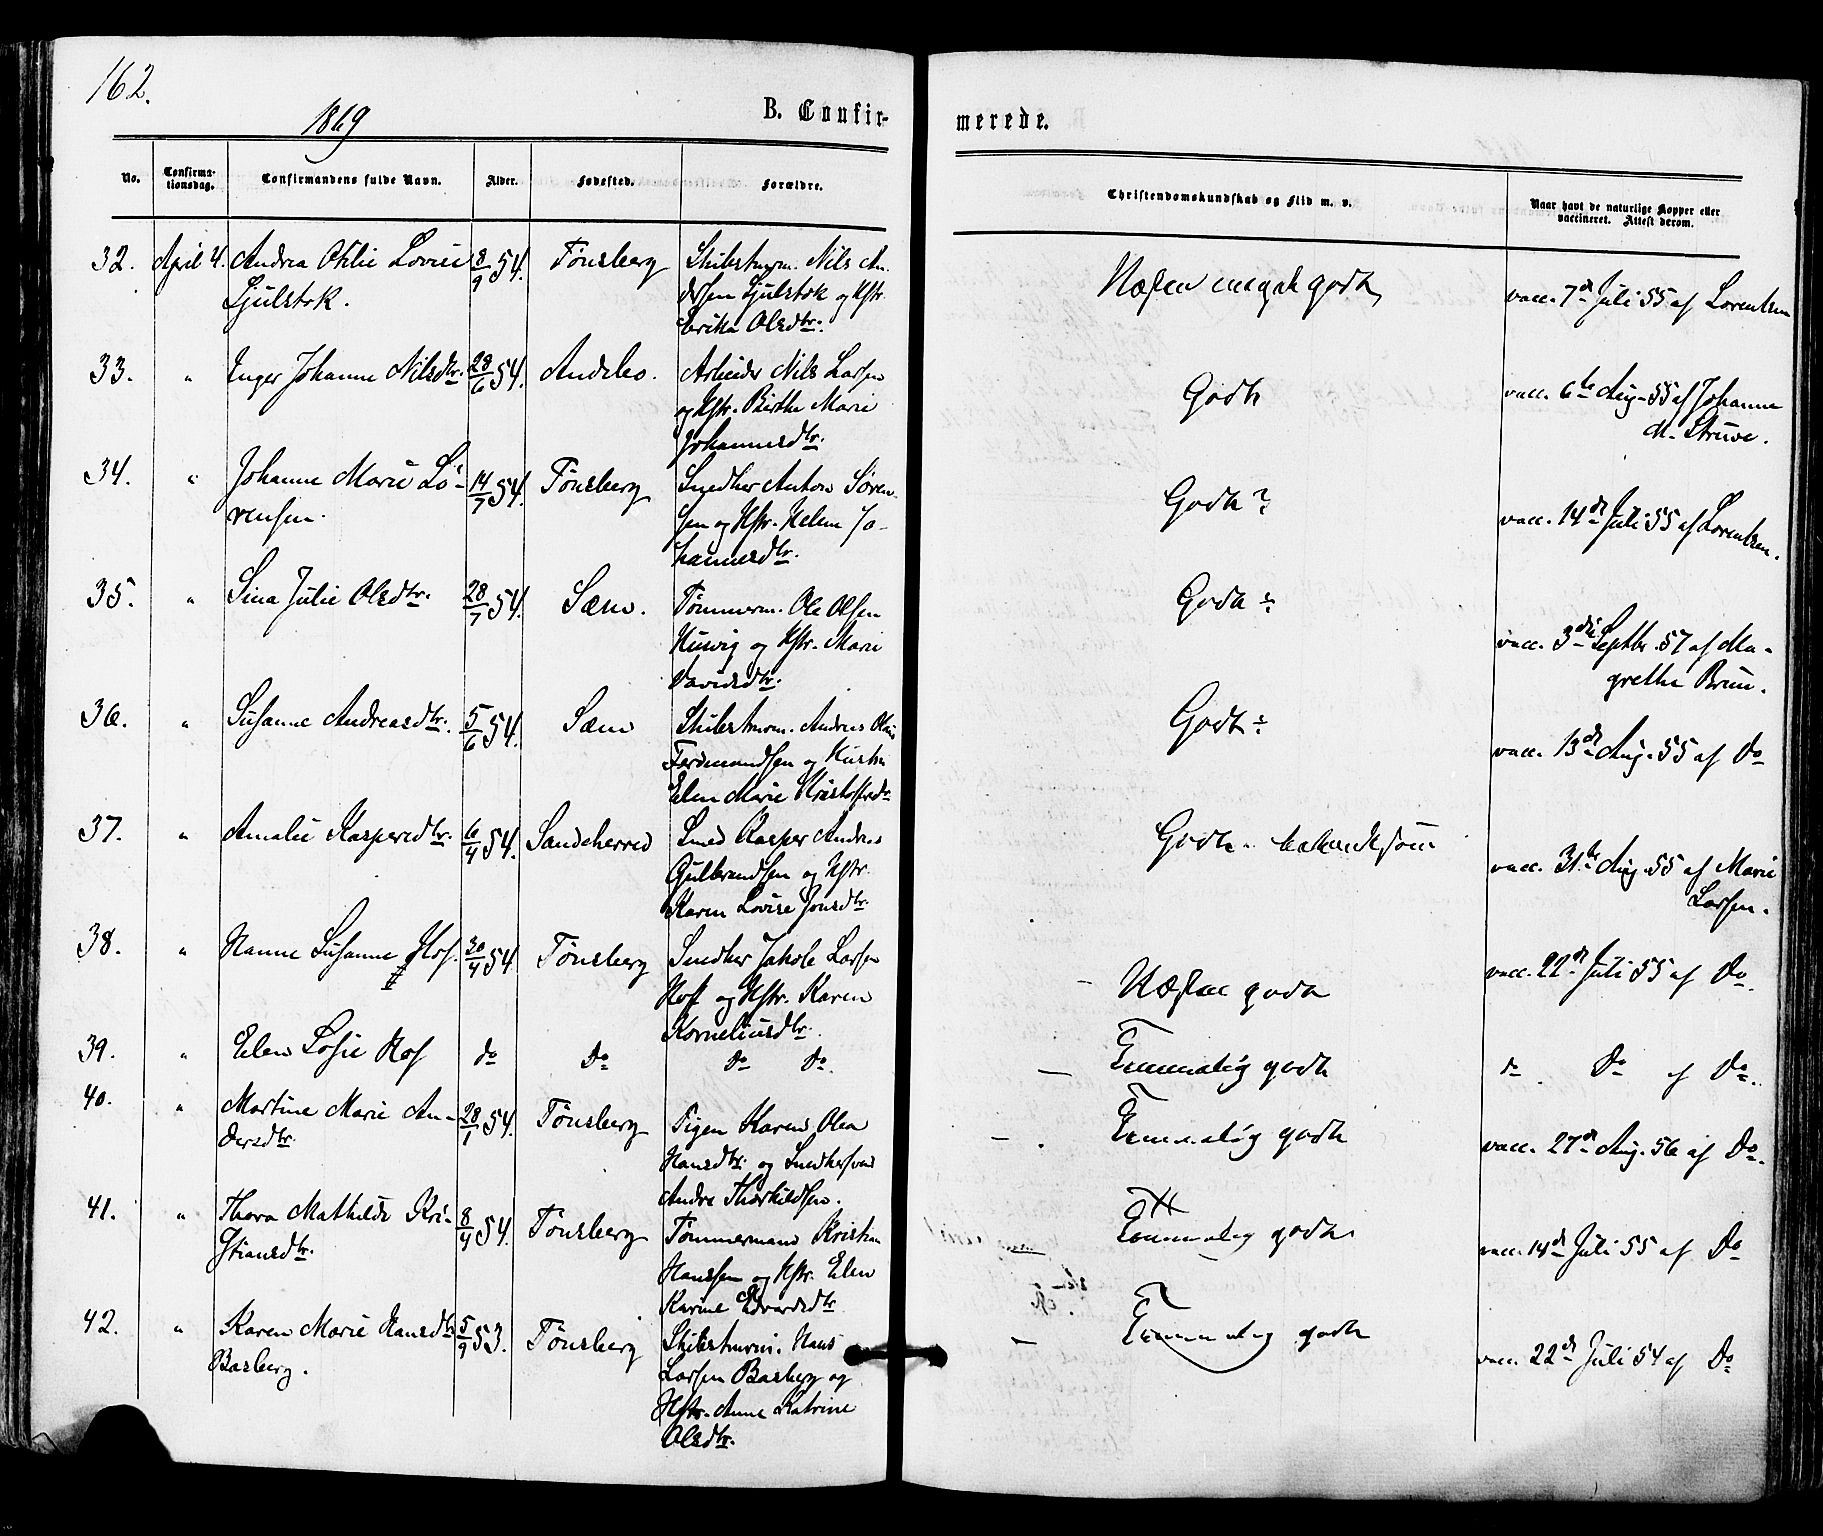 162.
1869
B. Confir-
merede.
No.
Confirma-
tionsdag.
Confirmandens fulde Navn.
Alder.
Fødested.
Forældre.
Christendomskundskab og Flid m. v.
Naar havt de naturlige Kopper eller
vaccineret. Attest derom.
32. April 4. Andrea Otilie Lovise 8/9 54. Tönsberg Skibstmrm. Nils An-
Sjulstok. dersen Sjulstok og Hstr.
Olsdtr.
Næsten meget godt
vacc. 7de Juli 55 af Lorentzen
33. " Inger Johanne Nilsdtr. 28/6 54. Andebo. Arbeider Nils Larsen
og Hstr. Birthe Marie
Johannesdtr.
Godt
vacc. 6te Aug. 55 af Johanne
M. Struve.
34. " Johanne Marie Sö- 14/7 54. Tönsberg Snedker Anton Sören-
rensen. sen og Hstr. Helene Jo-
hannesdtr.
Godt?
vacc. 14de Juli 55 af Lorentzen.
35. " Sina Julie Olsdtr. 28/7 54. Sæm. Tömmerm. Ole Olsen
og Hstr. Marie
Davidsdtr.
Godt÷
vacc. 3die Septbr. 57 af Ma-
grethe Bruu.
36. " Susanne Andreasdtr. 5/6 54. Sæm Skibstmrm. Andreas
Ferdinandsen og Hustru
Elen Marie
Godt÷
vacc. 13de Aug. 55 af Do
37. " Amalie Kaspersdtr. 6/4 54. Sandeherred Smed Kasper Andreas
Gulbrandsen og Hstr.
Karen Lovise Jonsdtr.
Godt.
vacc. 31te Aug. 55 af Marie
Larsen.
38. " Hanne Susanne Hof. 30/4 54 Tönsberg Snedker Jakob Larsen
Hof og Hstr. Karen
Korneliusdtr.
- Næsten godt
vacc. 22de Juli 55 af Do.
39. " Elen Sofie Hof do Do Do Do.
- Temmelig godt
do. Do af Do.
40. " Martine Marie An- 28/1 54. Tönsberg Pigen Karen Olea
dersdtr. Hansdtr. og Snedkersvend
Andre Thorkildsen.
- . Temmelig godt
vacc. 27de Aug. 56 af Do.
41. " Thora Mathilde Kri- 8/4 54. Tönsberg Tömmermand Kristian
stiansdtr. Hanssen og Hstr. Elen
Karine Edvardsdtr
Temmelig godt
vacc. 14de Juli 55 af Do
42. " Karen Marie Hansdtr 5/9 53. Tönsberg Skibstmrm. Hans
Basberg. Larsen Basberg og
Hstr. Anne Katrine
Olsdtr.
- Temmelig godt
vacc. 22de Juli 54 af Do